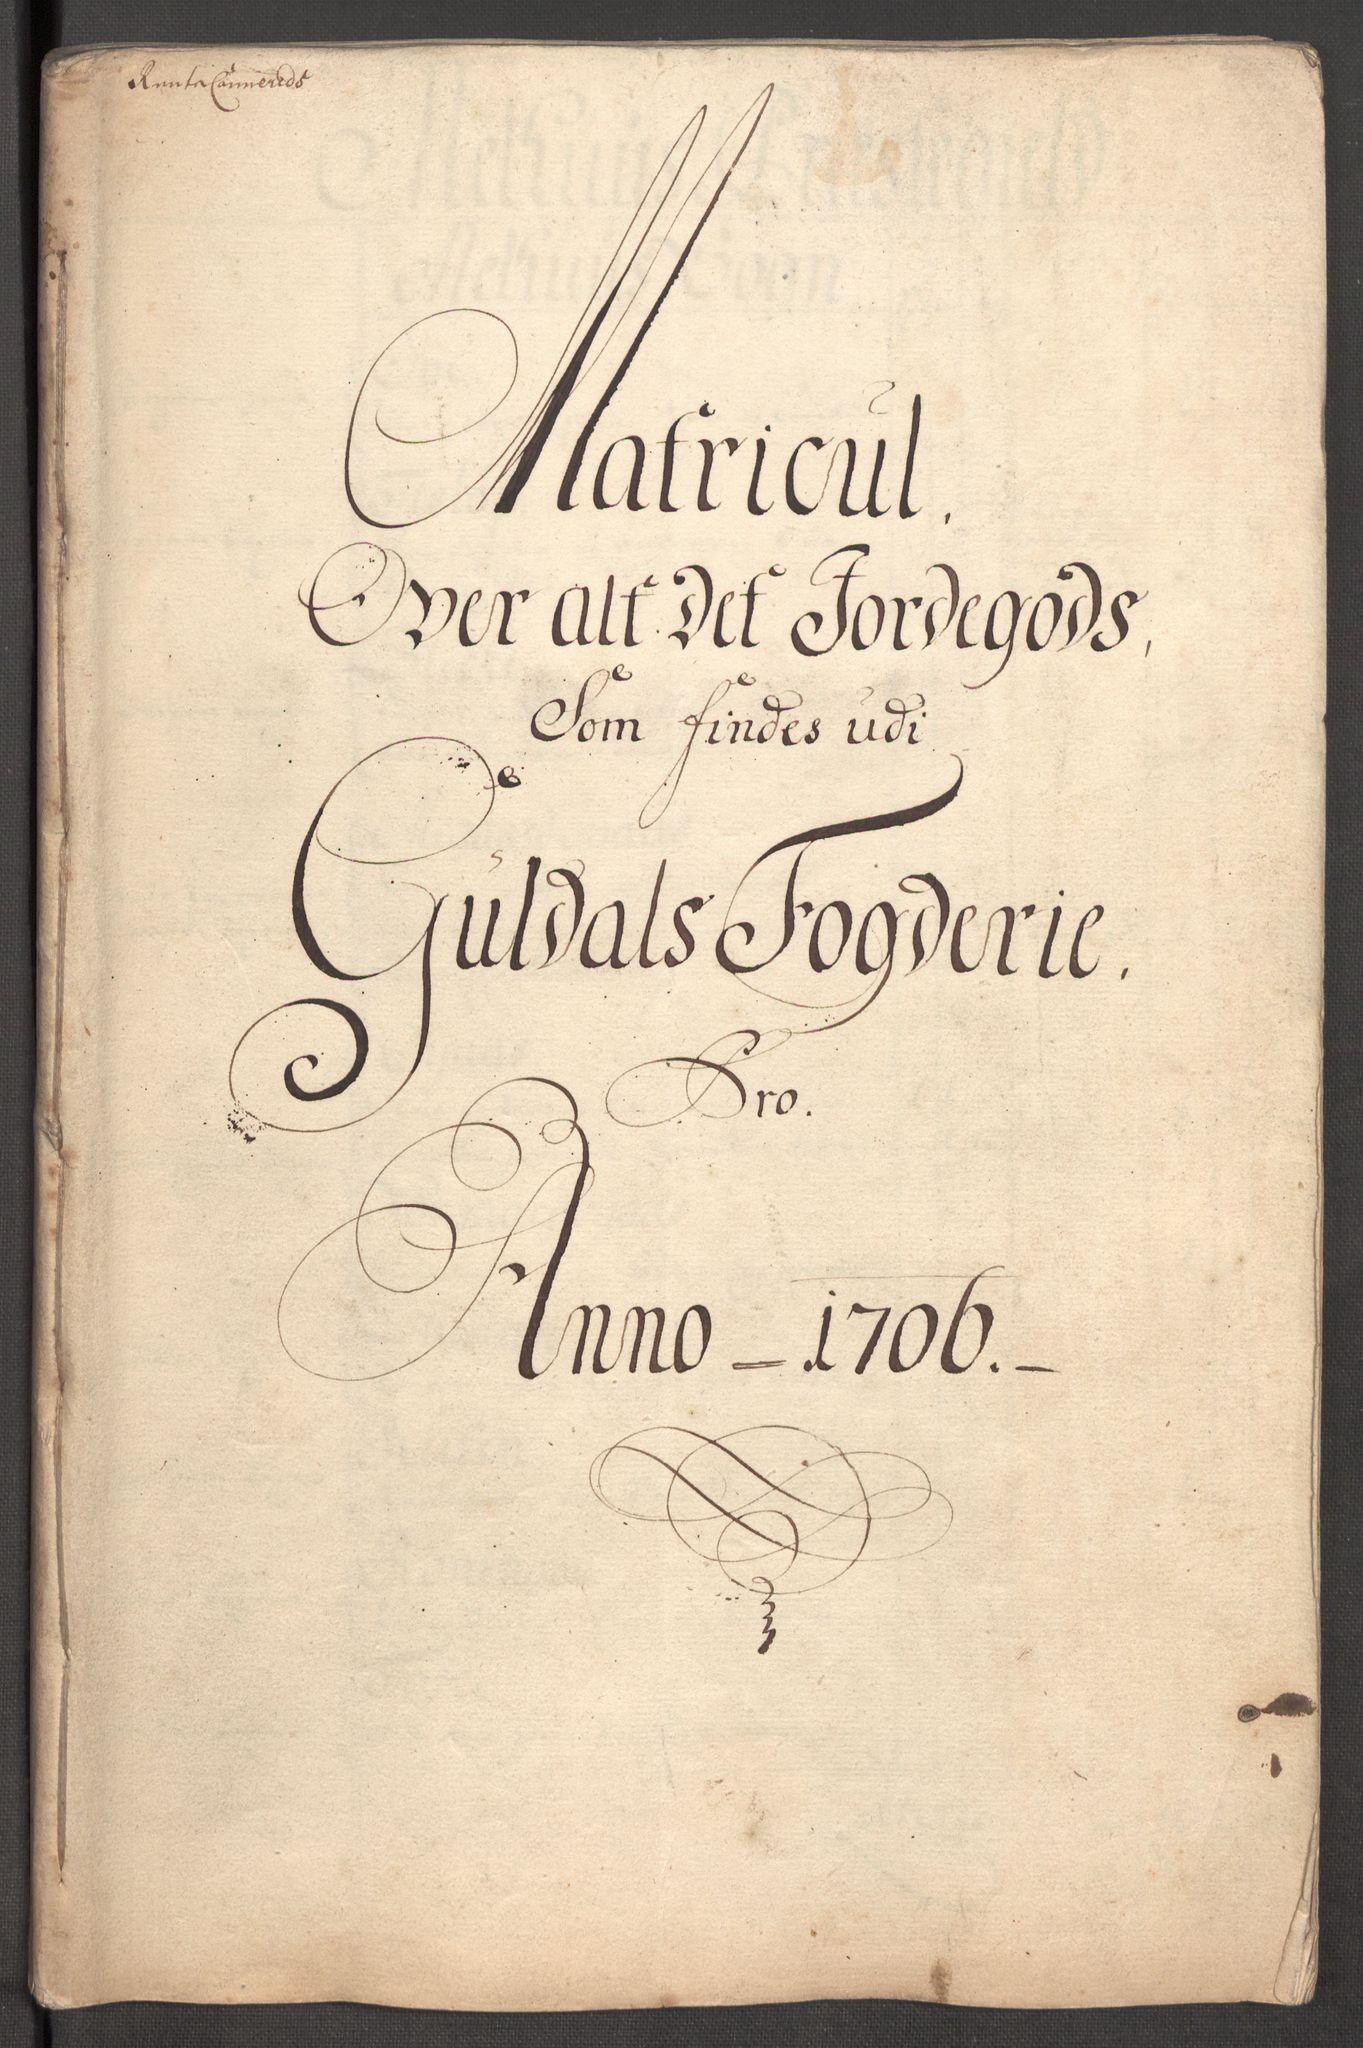 Rente Cammereds
Matricul.
Over alt det Jordegods,
Som findes udi
Guldals Fogderie.
Pro.
Anno - 1706. -